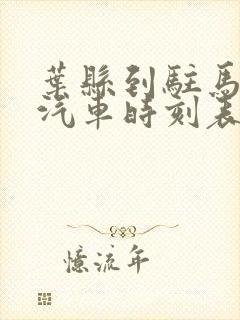 葉縣到駐馬
汽車時刻表
憶流年